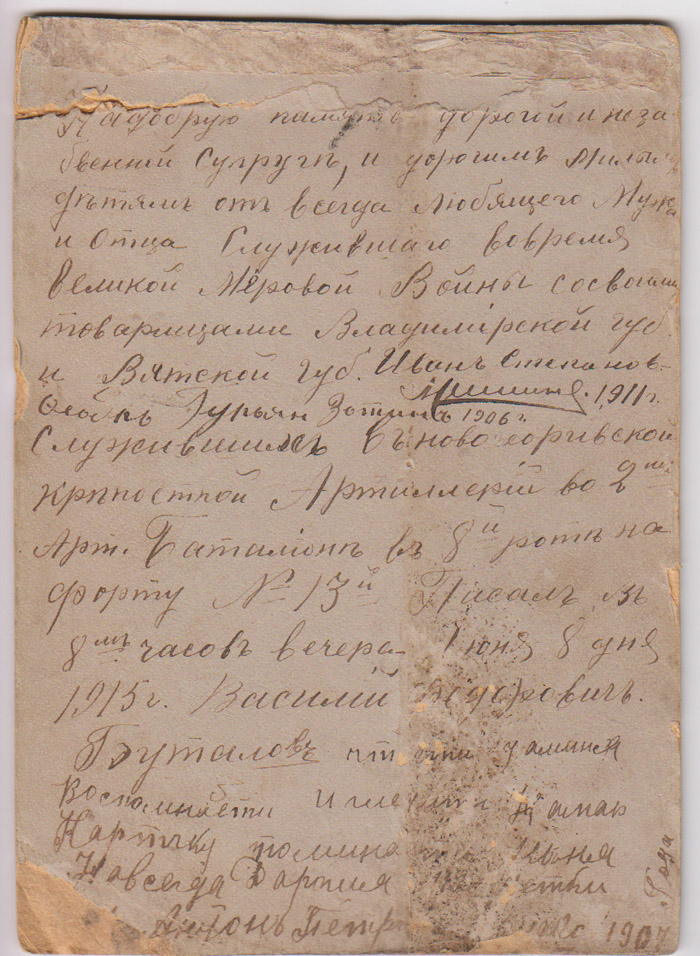 На добрую память дорогой и неза
бвенной Супруги, и дорогимъ милы
дѣтямъ отъ всегда Любящего Мужа
и Отца Служившаго вовремя
Великой Мѣровой Войны сосвоими
товарищами Владимірской губ.
и Вятской губ. Иванъ Степанов
1911 г.
Гурьян Зотинъ 1906 г.
Служившимъ Въ ново георгивской
крѣпостной Артиллерій во 2мъ
Арт. Баталіонѣ въ 8й ротѣ на
форту № 13й Писалъ въ
8мъ часовъ вечера Іюня 8 дня
1915 г. Василій Фёдоровичъ.
Бруталовъ
Воспоминайти и
Карточку помина
Навсегда
Антонъ Петр 1907
Года